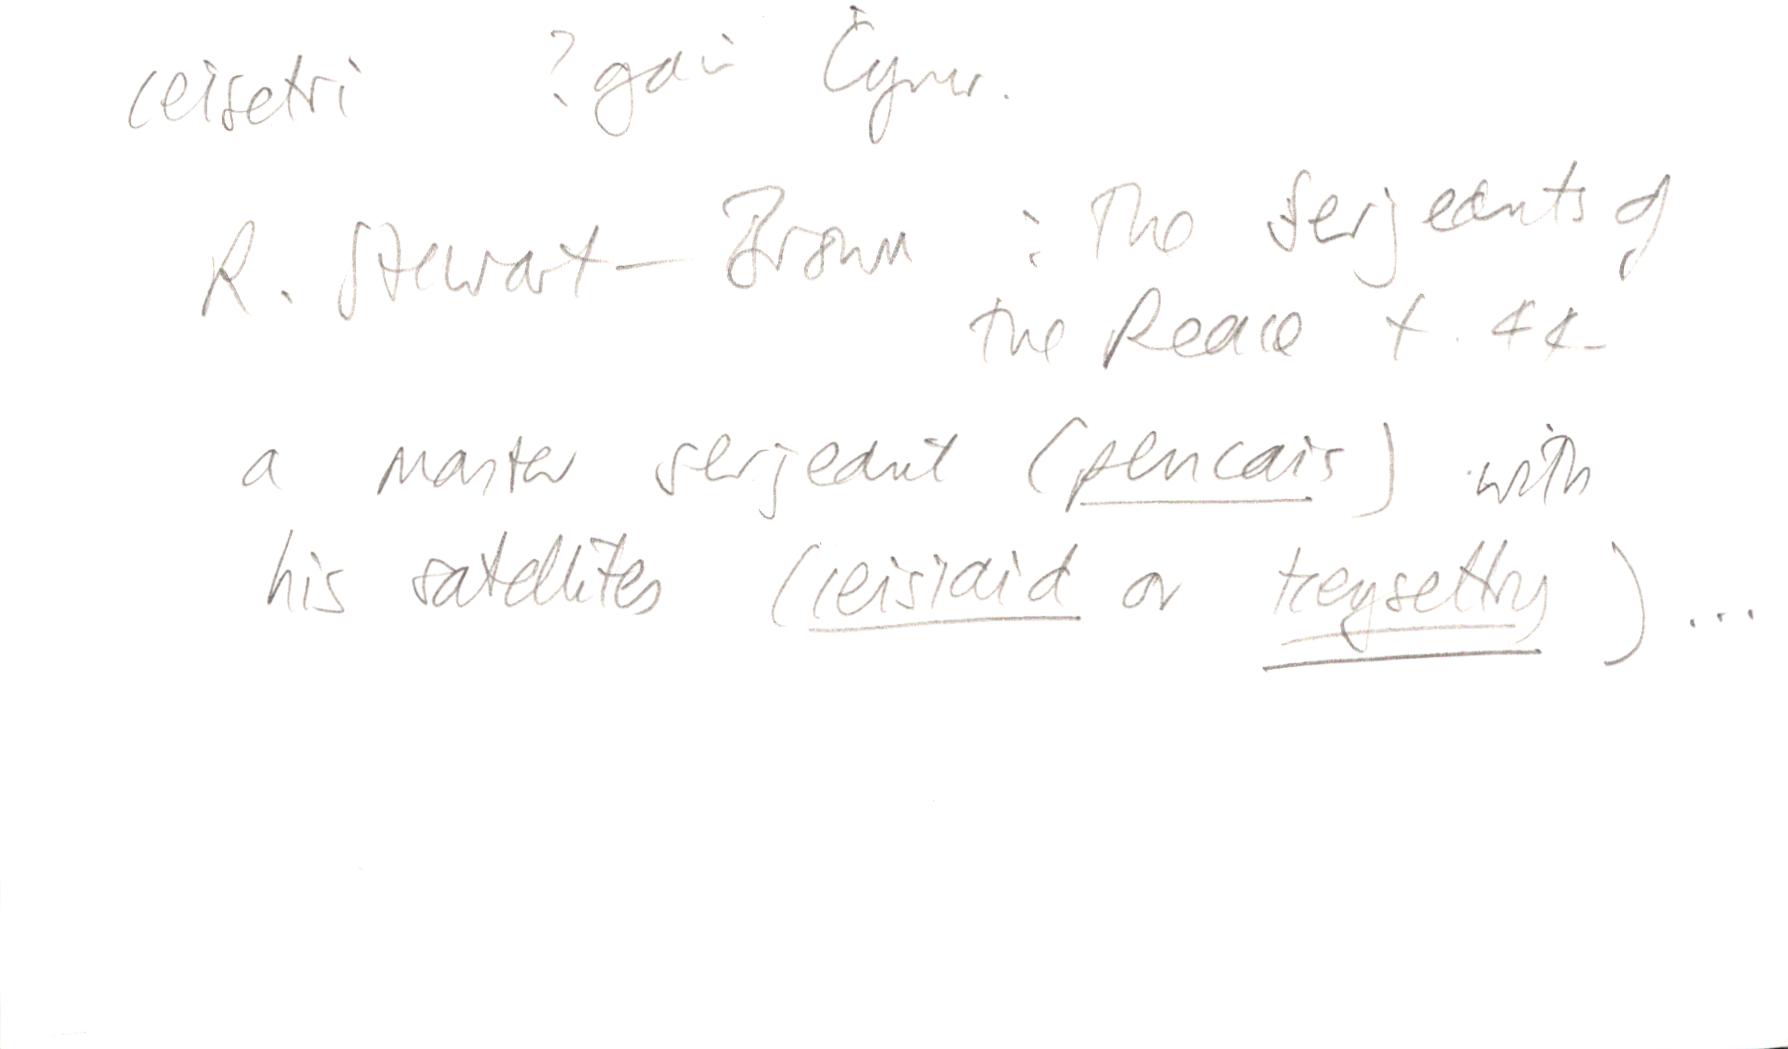 ceisetri ?gair Cymr.
R. Stewart-Brown : The Serjeants of
the Peace t. 44
a master serjeant (pencais) with
his satellites (ceisiaid or keysettry) ...